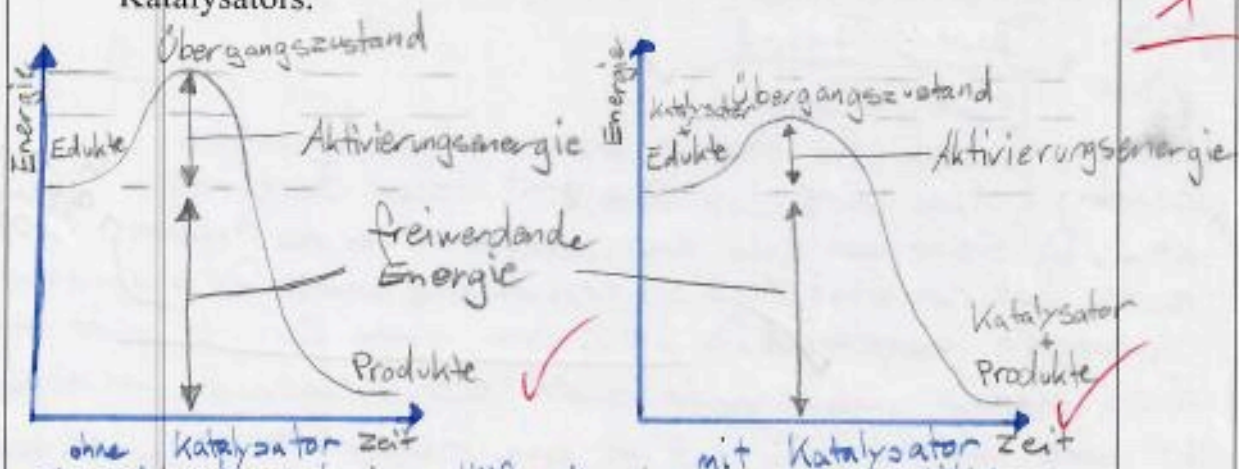 Katalysators.
Übergangszustand
Energie
Edukte
Aktivierungsenergie
freiwerdende
Energie
Produkte
ohne Katalysator Zeit
Energie
Katalysator
+
Edukte
Übergangszustand
Aktivierungsenergie
Katalysator
+
Produkte
mit Katalysator Zeit
1